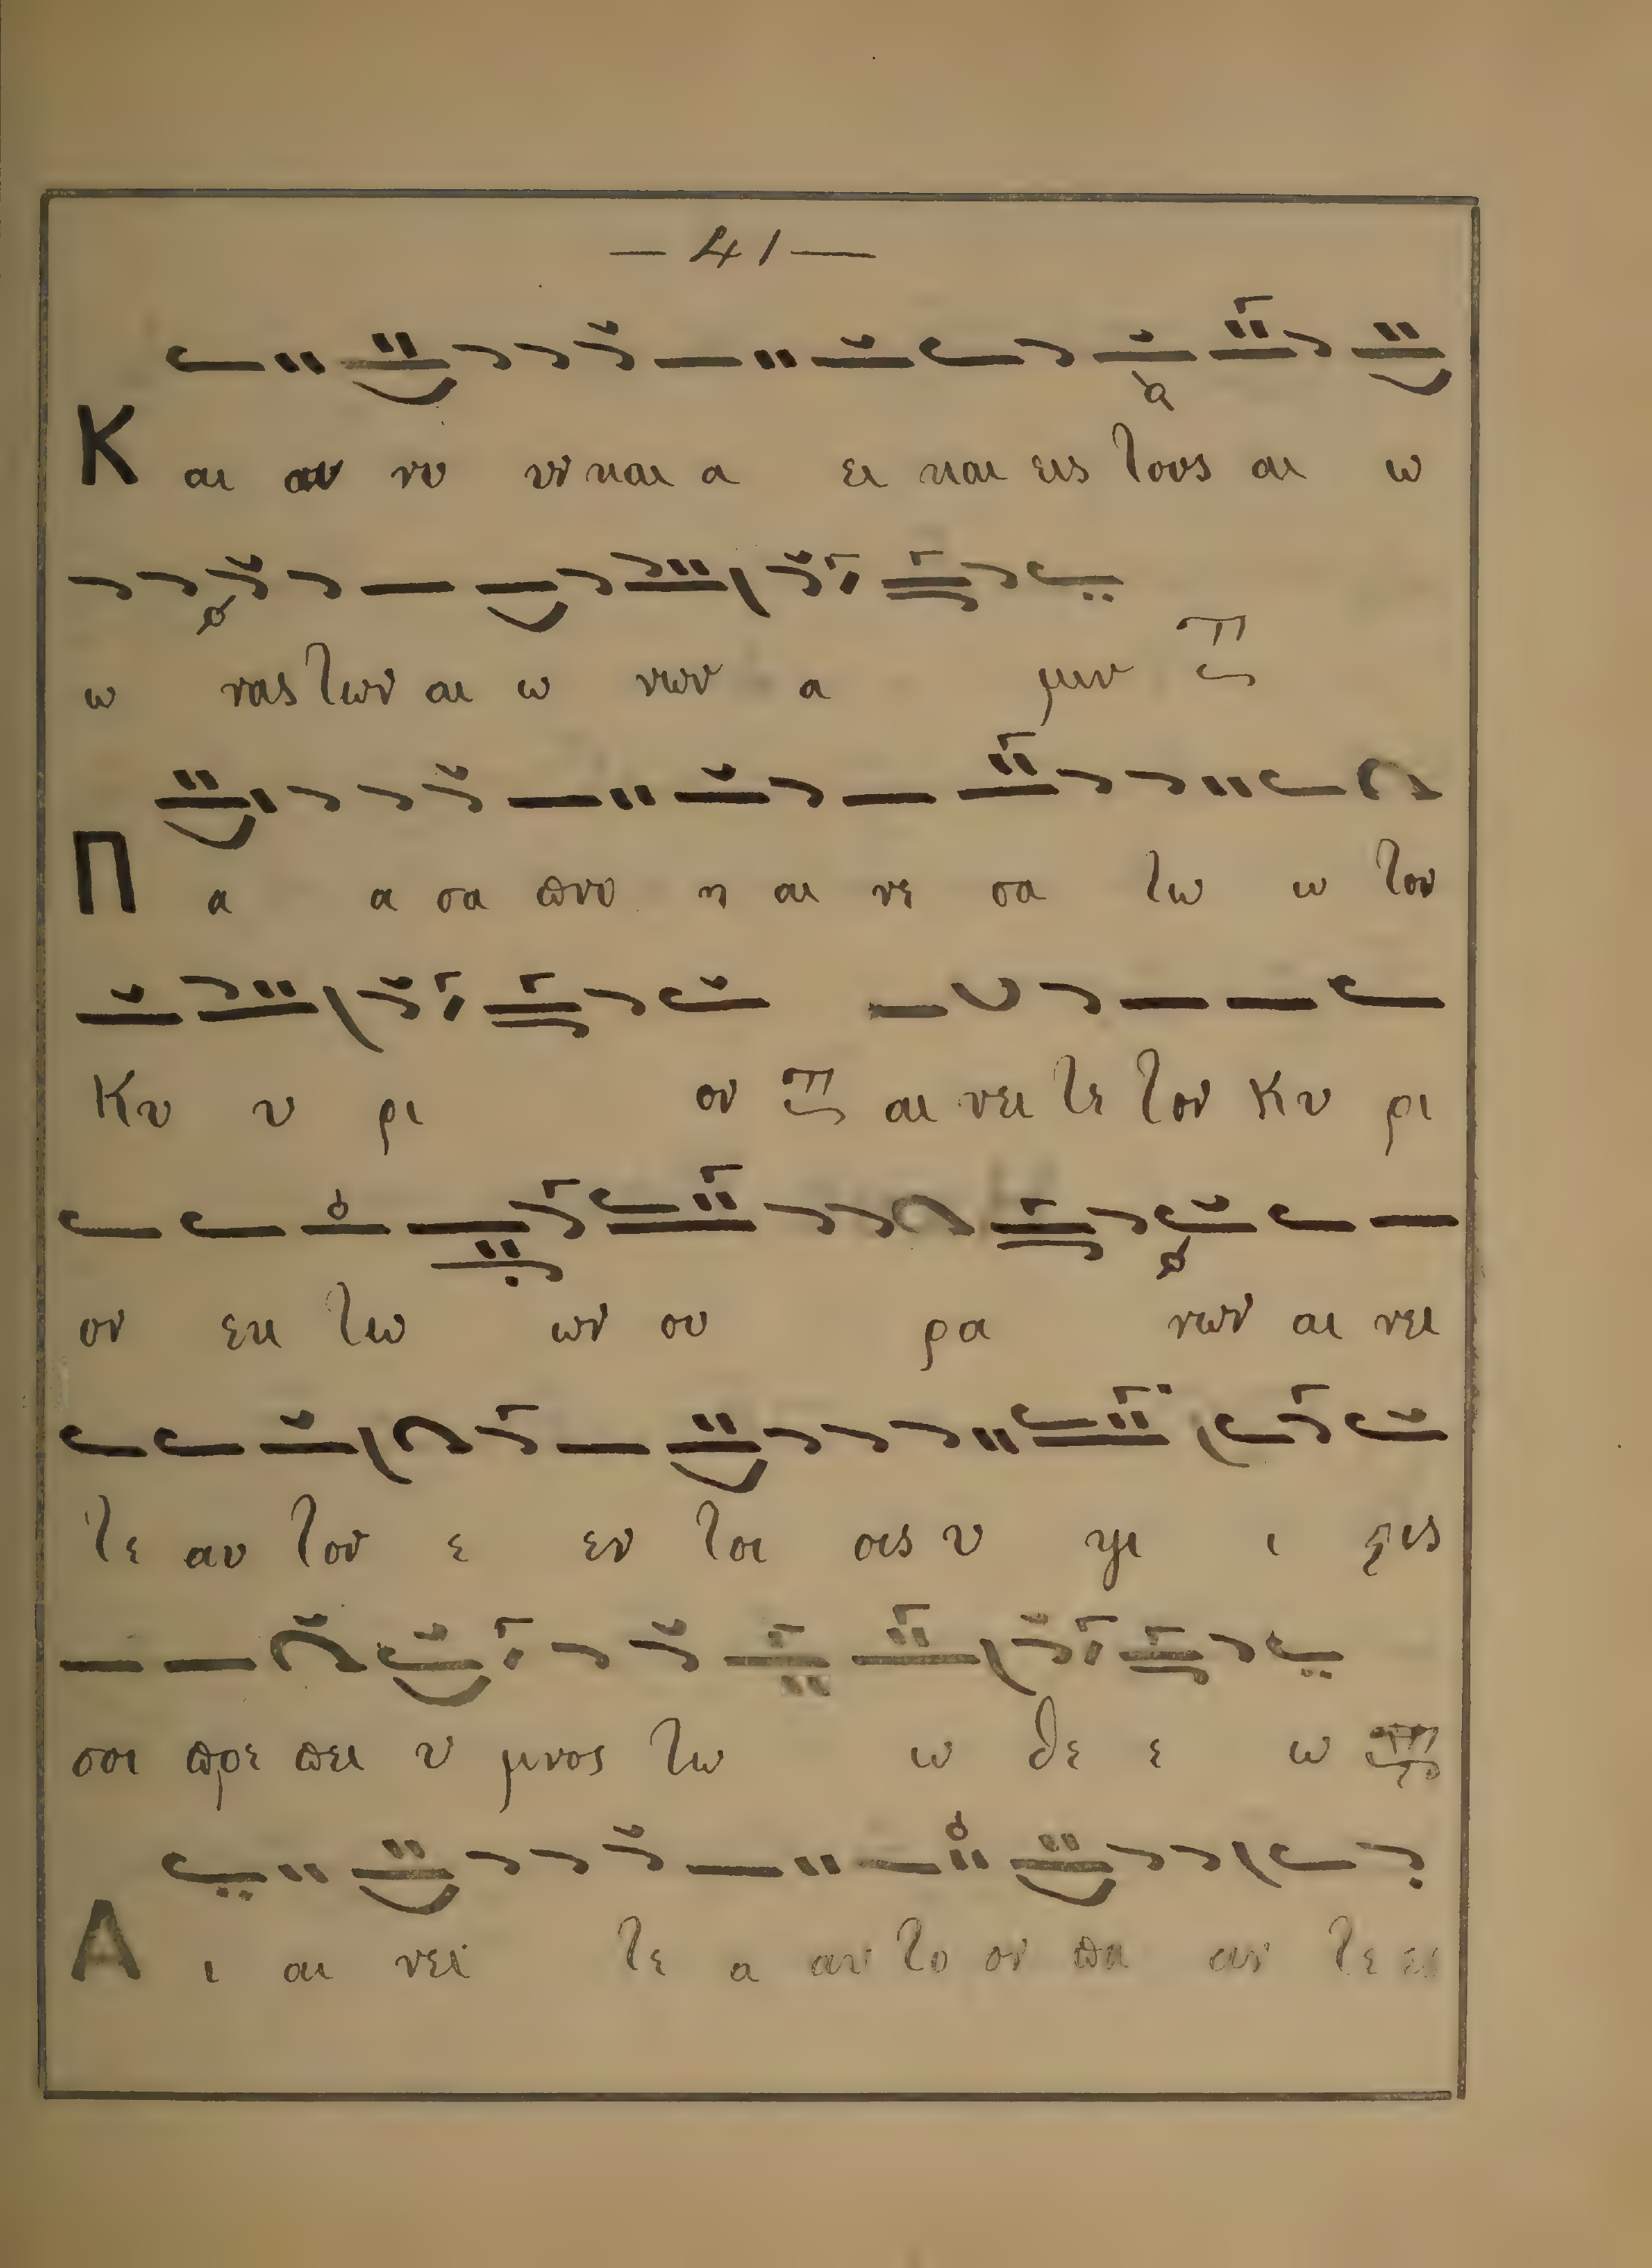 — 41 —
Κ αι αι νυ υν και α ει και εις τους αι ω
ω νας των αι ω νων α μιν
Π α α σα πνο η αι νε σα τω ω τον
Κυ υ ρι ον αι νει τε τον Κυ ρι
ον εκ τω ων ου ρα νων αι νει
τε αυ τον ε εν τοι οις υ ψι ι ςις
σοι πρε πει υ μνος τω ω θε ε ω
Α ι αι νει τε α αυ το ον πα αν τε